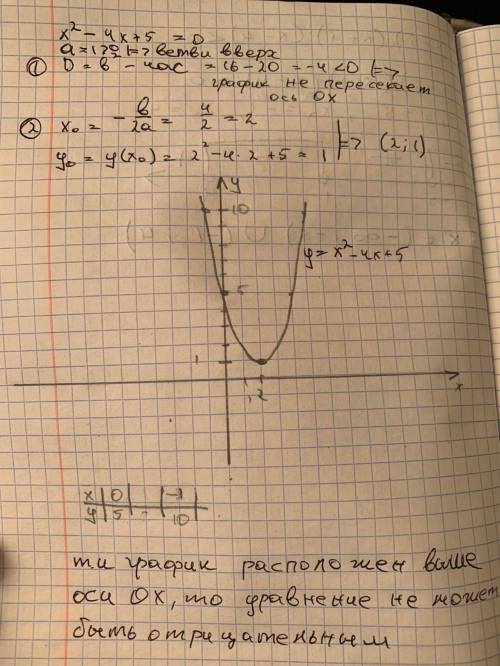 x² - 4x + 5 = 0
a = 1 > 0 |=> ветви вверх
① D = в² - 4ас = 16 - 20 = -4 < 0 |=>
график не пересекает
ось OX
② x₀ = - в/2a = 4/2 = 2
y₀ = y(x₀) = 2² - 4·2 + 5 = 1 |=> (2;1)
y
10
y = x² - 4x + 5
5
1
1 2
x
x | 0 | | -1 |
y | 5 | - | 10 |
т.и график расположен выше
оси OX, то уравнение не может
быть отрицательным